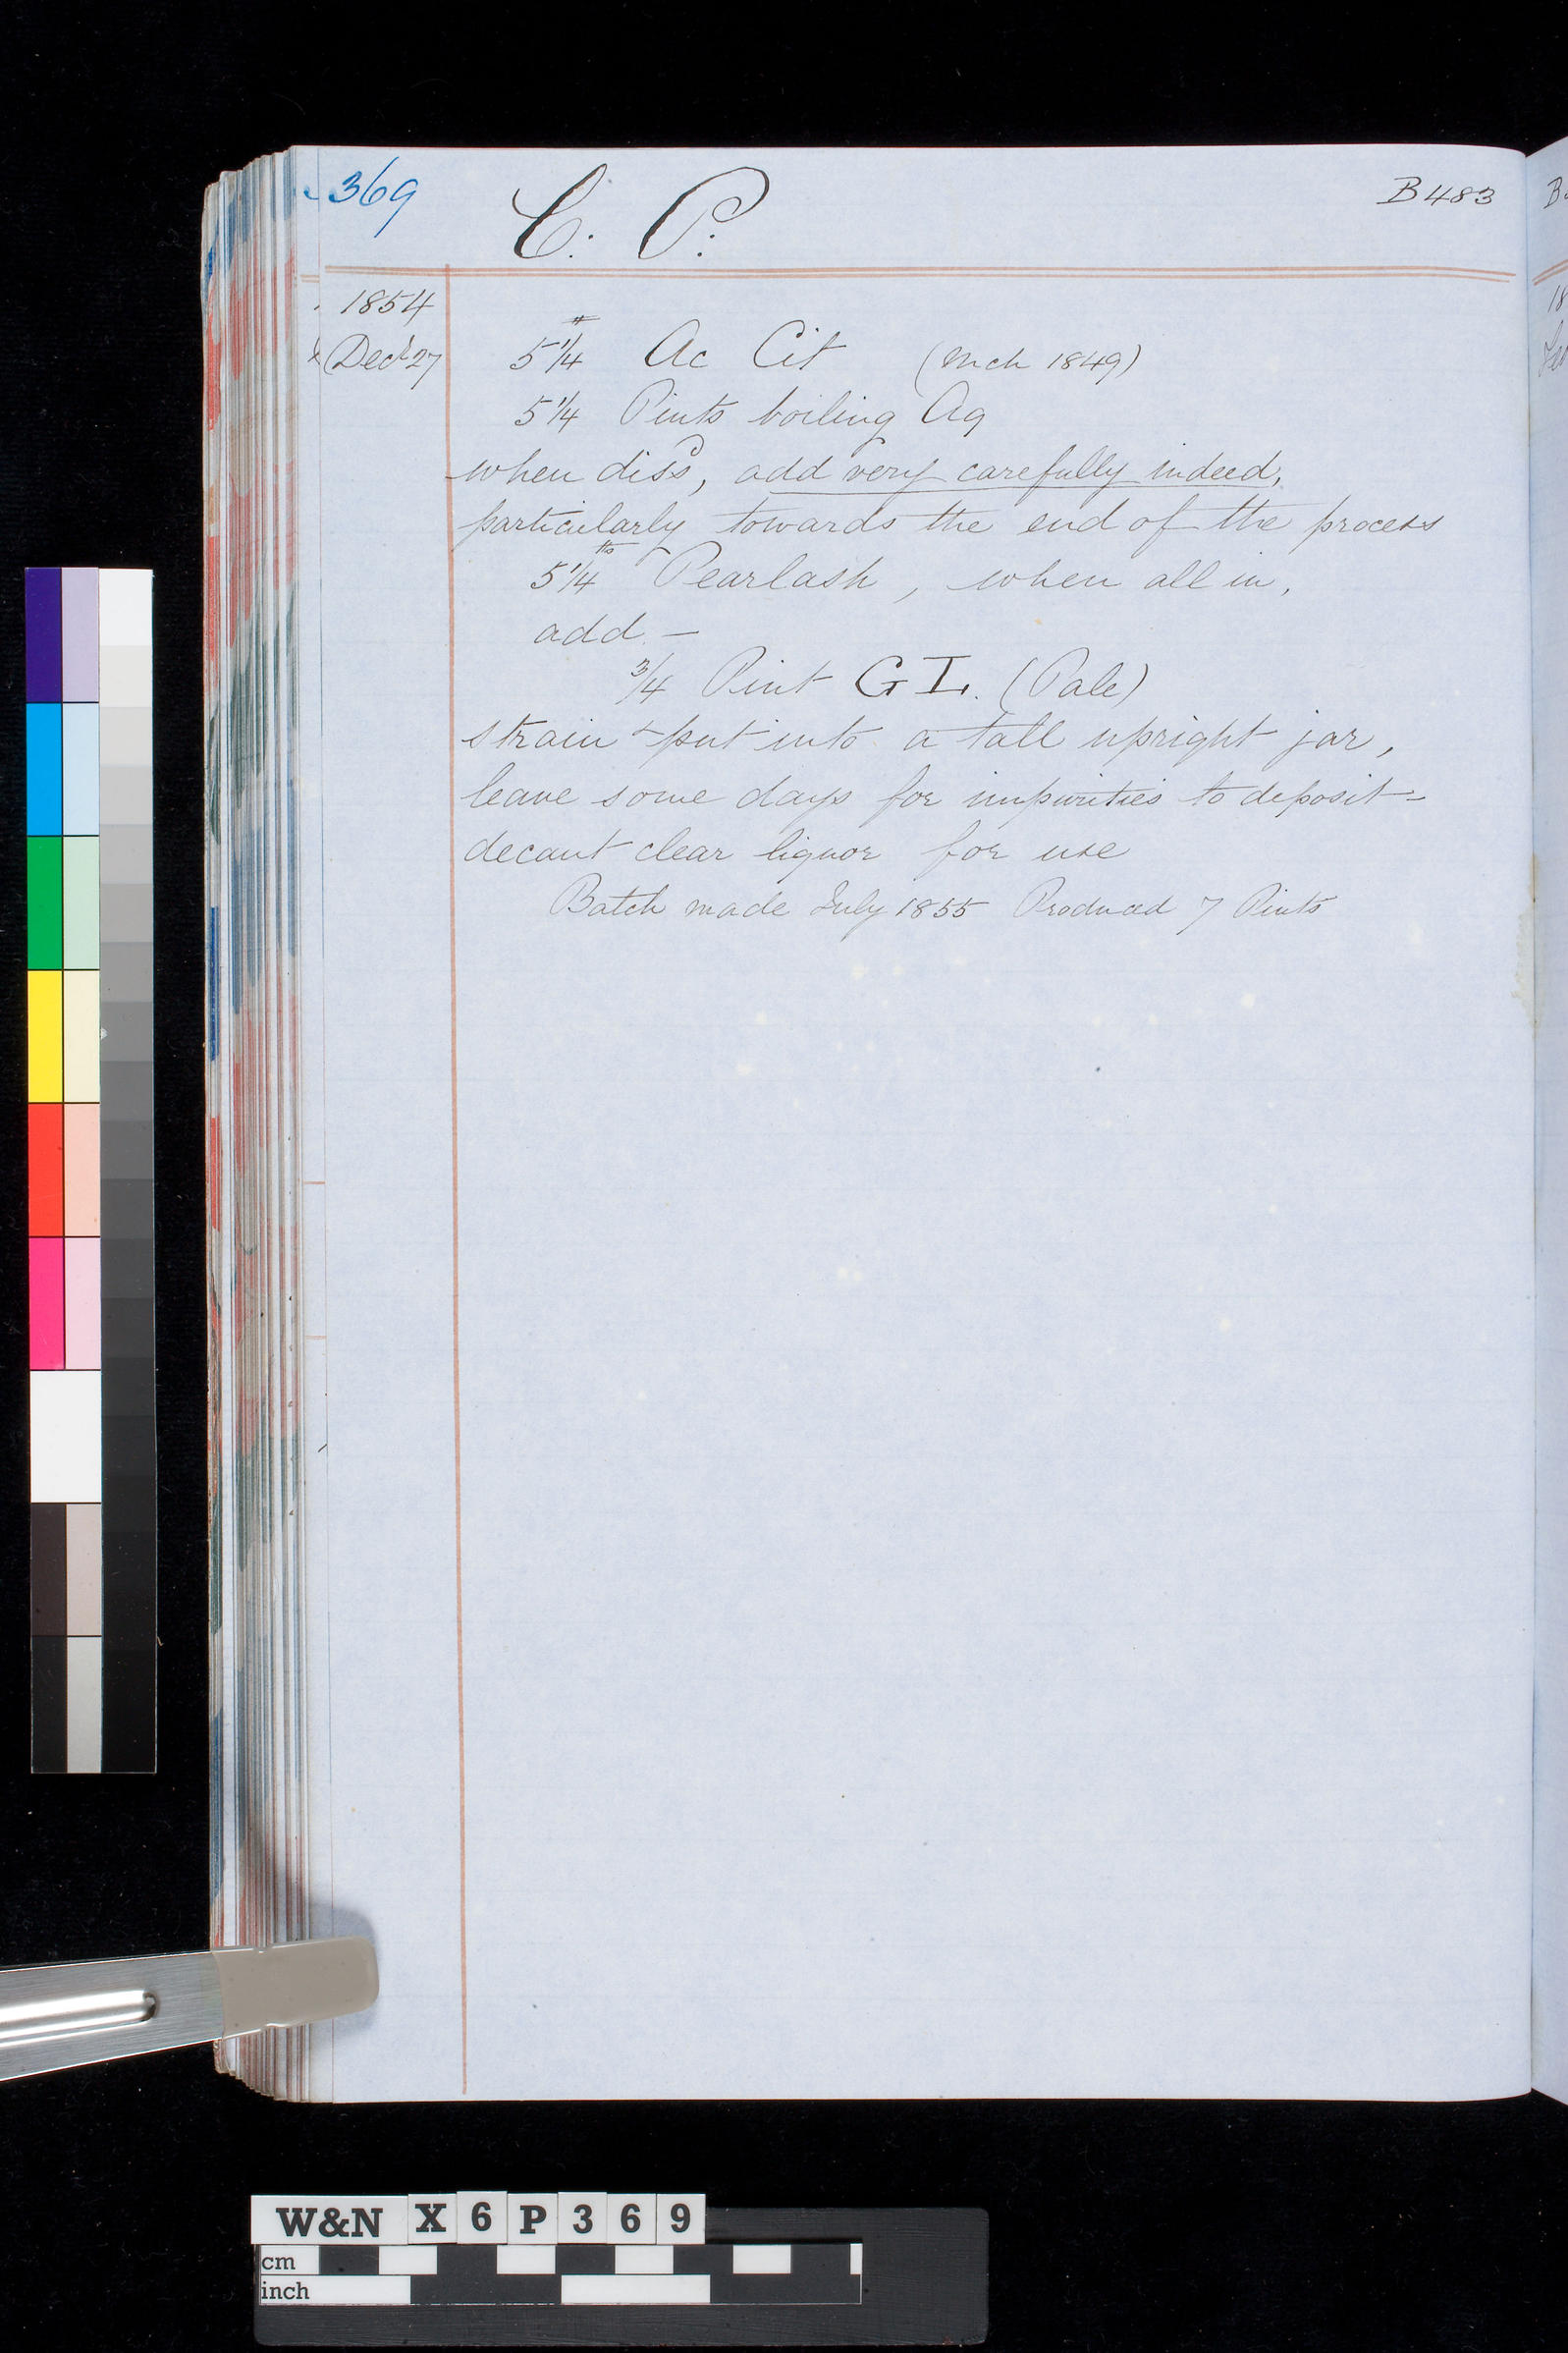 369 C. P. B483
1854
Decr 27 5 1/4 # Ac Cit (Mch 1849)
5 1/4 Pints boiling Aq
when dissd, add very carefully indeed,
particularly towards the end of the process
5 1/4 lbs Pearlash, when all in,
add —
3/4 Pint GL. (Pale)
strain & put into a tall upright jar,
leave some days for impurities to deposit -
decant clear liquor for use
Batch made July 1855 Produced 7 Pints
W&N X6P369
cm
inch